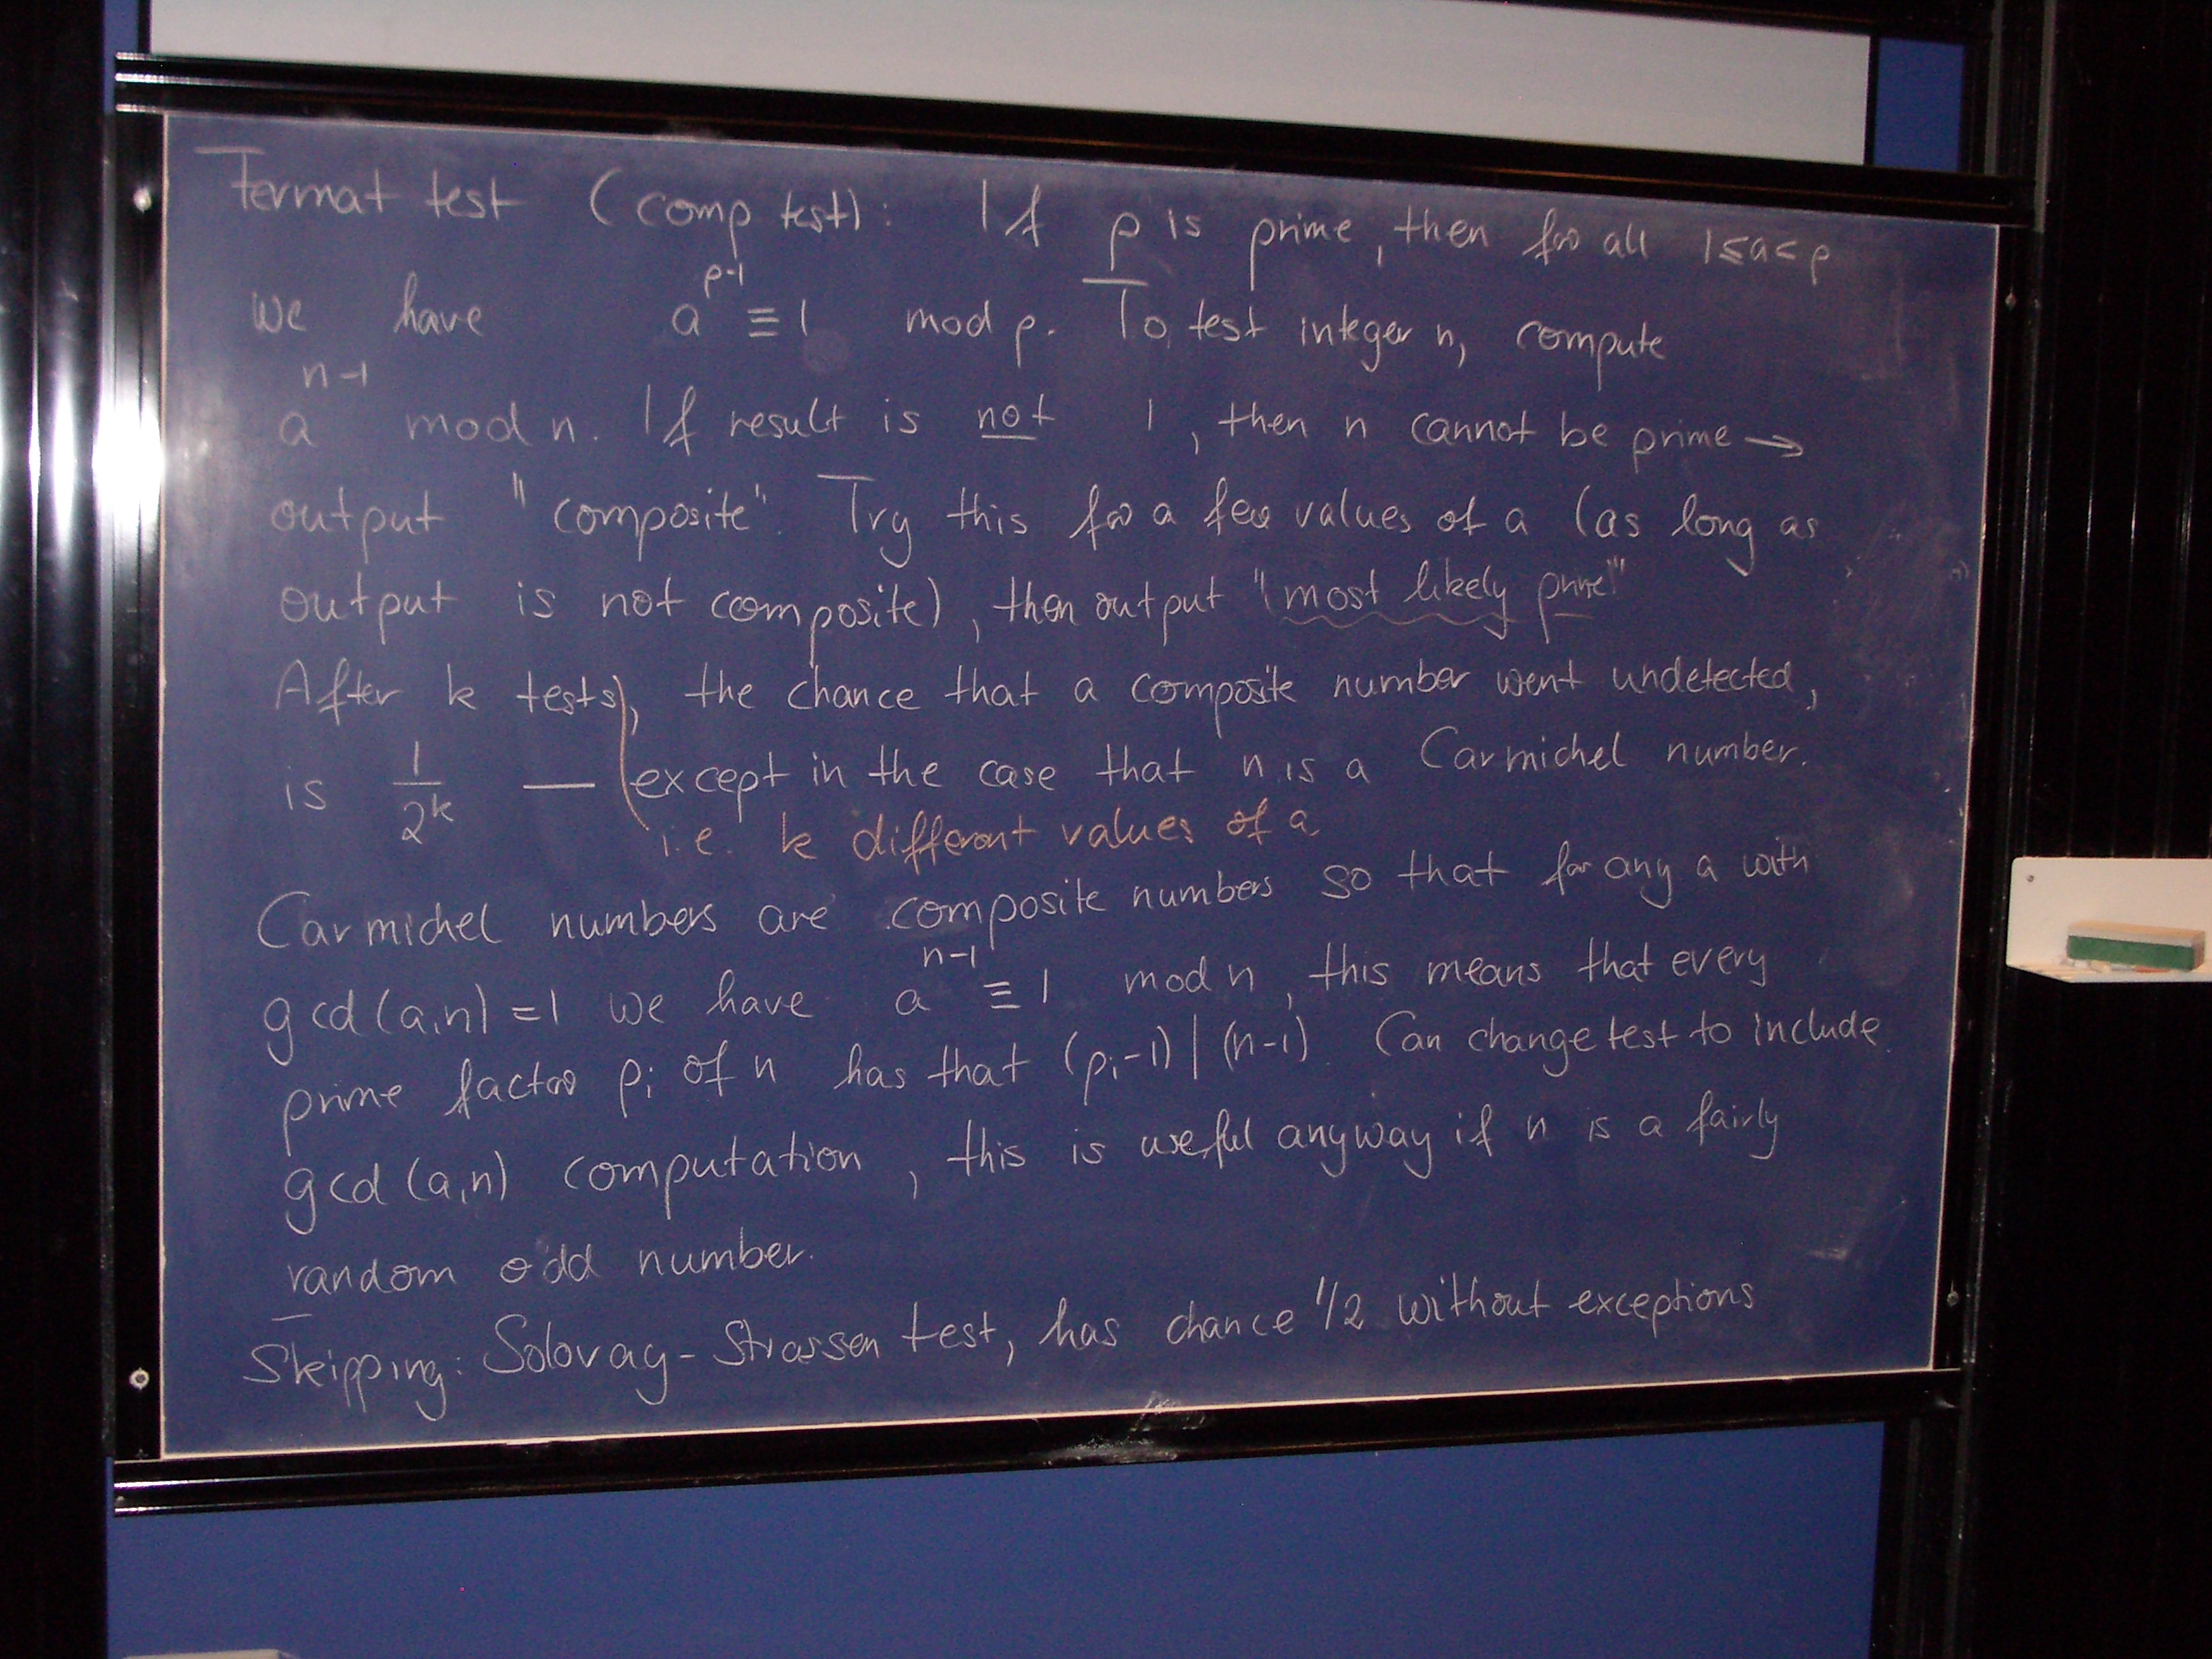 Fermat test (comp test): If p is prime, then for all 1≤a<p
we have a^{p-1} ≡ 1 mod p. To test integer n, compute
a^{n-1} mod n. If result is not 1, then n cannot be prime →
output "composite". Try this for a few values of a (as long as
output is not composite), then output "most likely prime"
After k tests, the chance that a composite number went undetected,
is 1/2^k — except in the case that n is a Carmichel number.
i.e. k different values of a
Carmichel numbers are composite numbers so that for any a with
gcd(a,n)=1 we have a^{n-1} ≡ 1 mod n, this means that every
prime factor p_i of n has that (p_i-1) | (n-1). Can change test to include
gcd(a,n) computation, this is useful anyway if n is a fairly
random odd number.
Skipping: Solovay-Strassen test, has chance 1/2 without exceptions